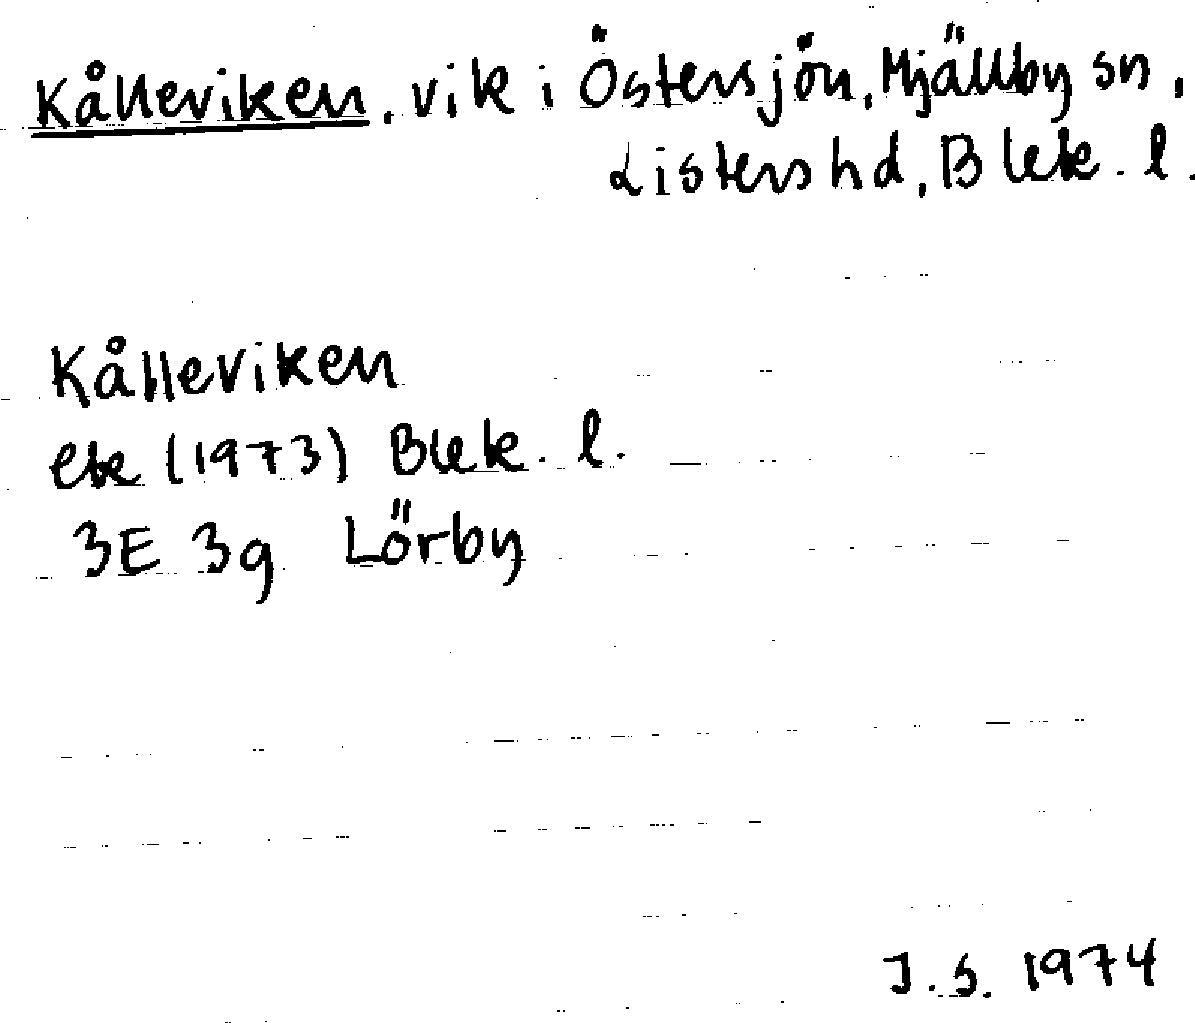 Kålleviken, vik i Östersjön, Mjällby sn,
Listers hd, Blek. l.
Kålleviken
ek (1973) Blek. l.
3E 3g Lörby
J.S. 1974